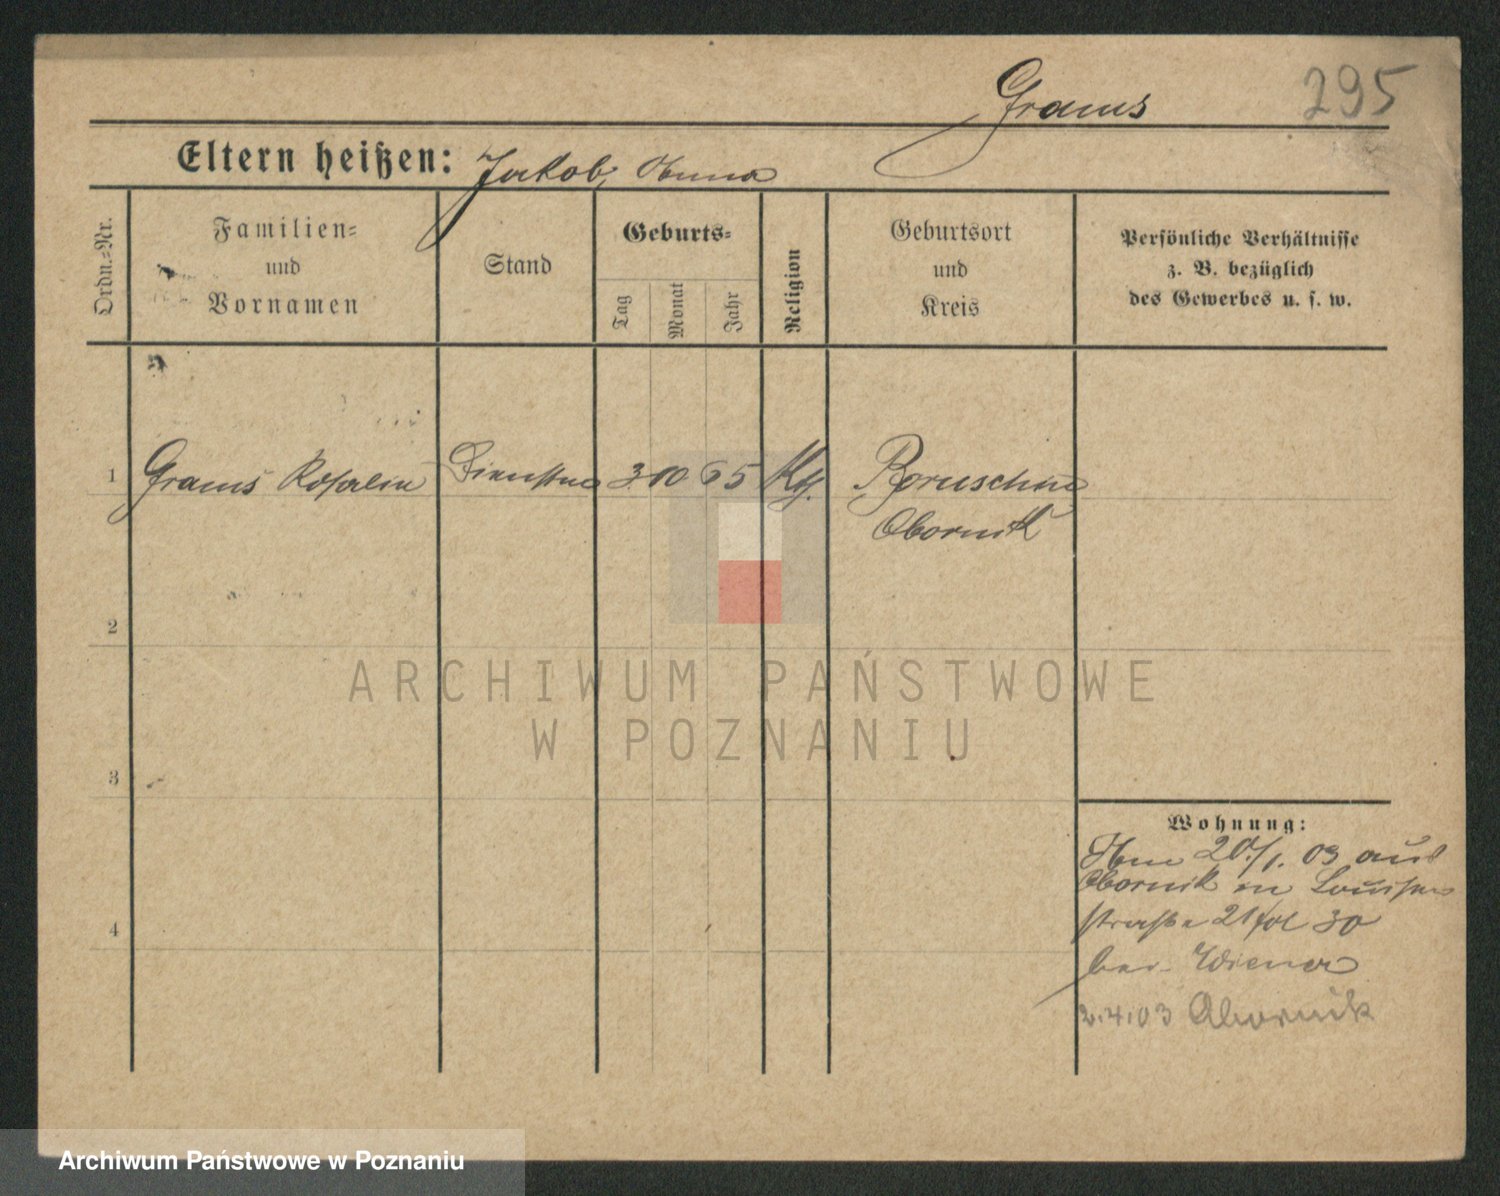 Grams
295
Eltern heißen: Jakob, Anna
Ordn.-Nr.
Familien-
und
Vornamen
Stand
Geburts-
Tag
Monat
Jahr
Religion
Geburtsort
und
Kreis
Persönliche Verhältnisse
z. B. bezüglich
des Gewerbes u. s. w.
1 Grams Rosalie 3 10 65 Kth. Boruschin
Obornik
2
3
4
Wohnung:
20/1. 03 aus
Obornik in Louisen
straße 21 30
bei Wiener
2.4.03 Obornik
ARCHIWUM PAŃSTWOWE
W POZNANIU
Archiwum Państwowe w Poznaniu